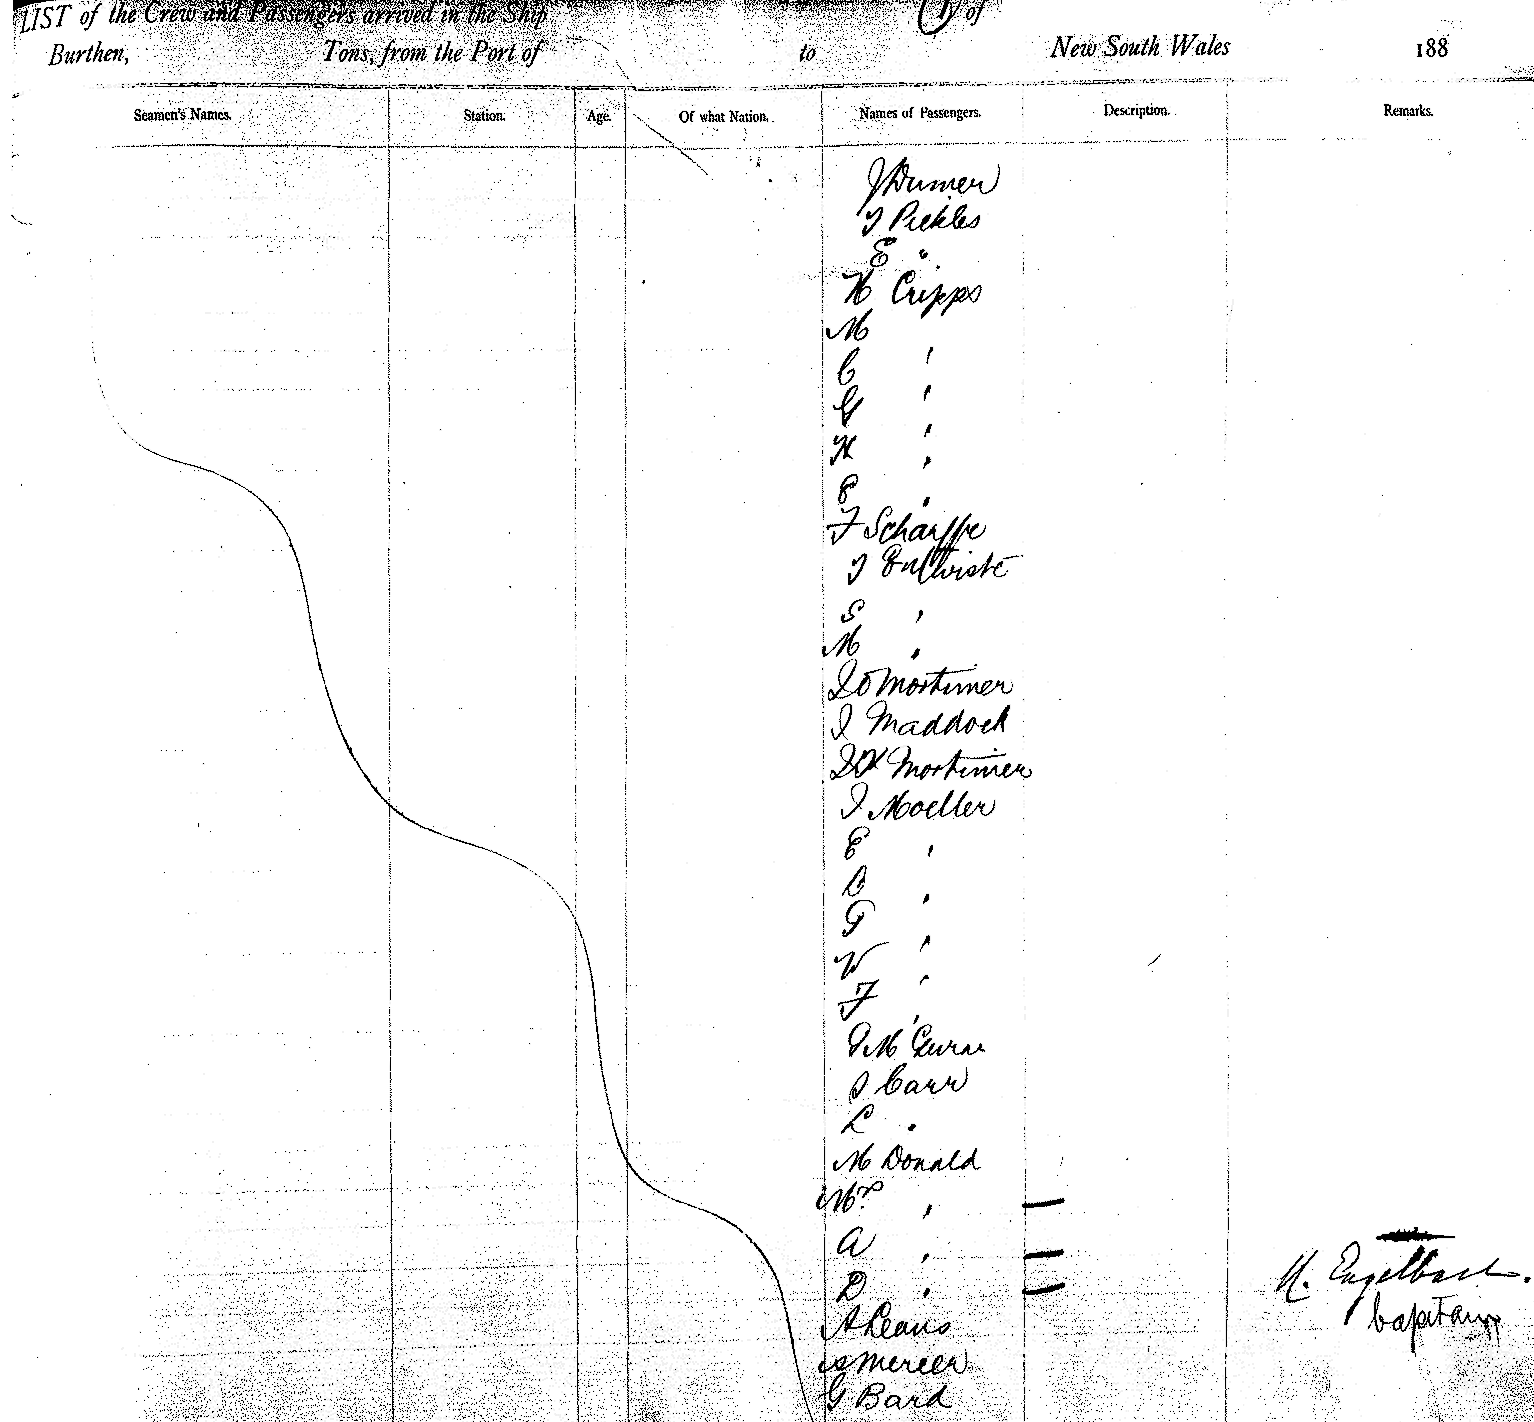 LIST of the Crew and Passengers arrived in the Ship of
Burthen, Tons, from the Port of to New South Wales 188
Seamen's Names. Station. Age. Of what Nation. Names of Passengers. Description. Remarks.
J Pickles
E "
H Cripps
M
C '
G '
H '
E '
F Scharffe
J Entwiste
S '
M '
Mortimer
J Maddock
Mortimer
J Moeller
E '
D '
G '
W '
F '
J Carr
L "
M Donald
Mrs '
A '
D '
A Leans
Mercer
G Bard
H. Engelbart.
Capitain